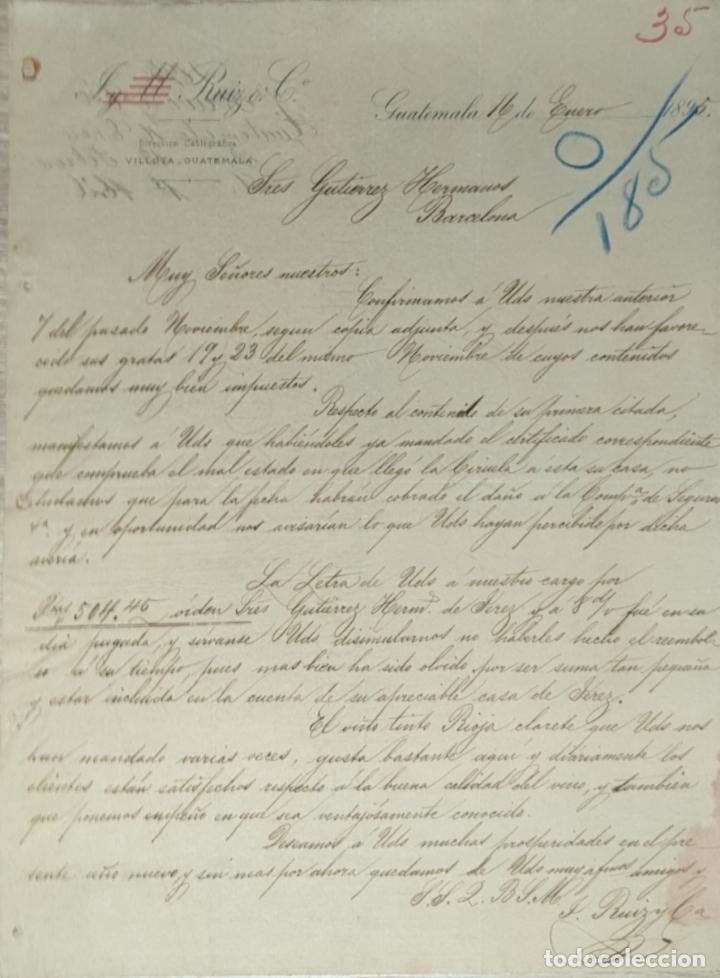 35
J. y M. Ruiz & Cº
Guatemala 16 de Enero 1895.
Dirección Cablegráfica
VILLOTA-GUATEMALA
0/185
Sres Gutiérrez Hermanos
Barcelona
Muy Señores nuestros:
Confirmamos á Uds nuestra anterior
7 del pasado Noviembre, segun copia adjunta, y después nos han favore-
cido sus gratas 19 y 23 del mismo Noviembre de cuyos contenidos
quedamos muy bien impuestos.
Respecto al contenido de su primera citada,
manifestamos á Uds que habiéndoles ya mandado el certificado correspondiente
que comprueba el mal estado en que llegó la Ciruela a esta su casa, no
dudamos que para la fecha habrán cobrado el daño a la Compª de Seguros
y, en oportunidad nos avisarían lo que Uds hayan percibido por dicha
avería.
La Letra de Uds á nuestro cargo por
504.45 órden Sres Gutiérrez Hermº de Jerez á 8 d/v fué en su
día pagada, y sírvanse Uds disimularnos no haberles hecho el reembol-
so á su tiempo, pues mas bien ha sido olvido por ser suma tan pequeña
y estar incluida en la cuenta de su apreciable casa de Jérez.
El vino tinto Rioja clarete que Uds nos
han mandado varias veces, gusta bastante aquí y diariamente los
clientes están satisfechos respecto á la buena calidad del vino, y tambien
que ponemos empeño en que sea ventajosamente conocido.
Deseamos á Uds muchas prosperidades en el pre-
sente año nuevo, y sin mas por ahora quedamos de Uds muy afmos amigos y
S.S. Q. B. S. M.
J. Ruiz y Ca
todocoleccion.net